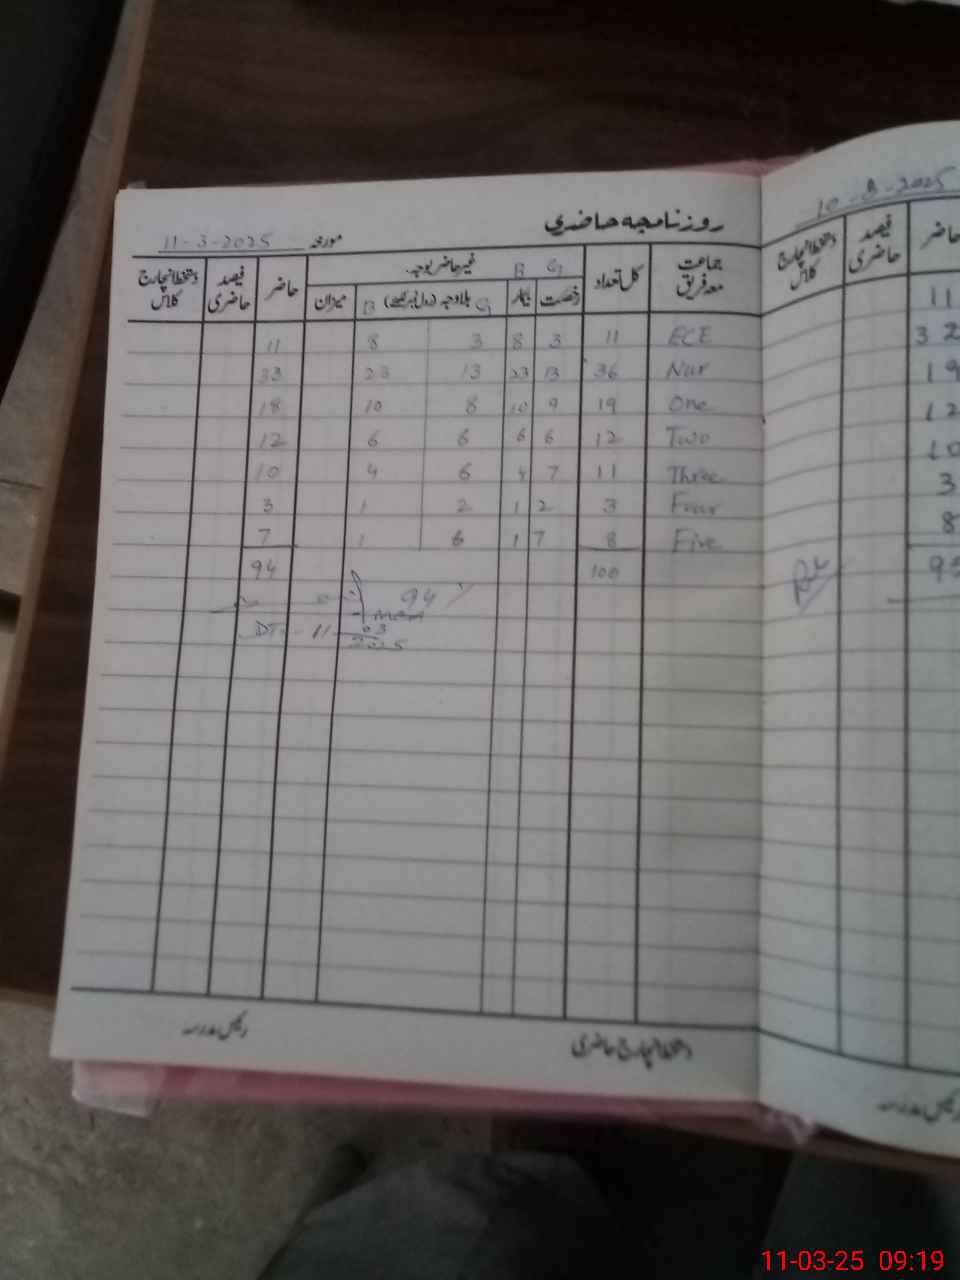 روزنامچہ حاضری
مورخہ 11-3-2025
جماعت معہ فریق کل تعداد غیر حاضر بوجہ B G حاضر فیصد حاضری دستخط انچارج کلاس
رخصت بیمار G بلاوجہ (رول نمبر لکھیئے) B میزان
ECE 11 3 8 3 8 11
Nur 36 13 23 13 23 33
One 19 9 10 8 10 18
Two 12 6 6 6 6 12
Three 11 7 4 6 4 10
Four 3 2 1 2 1 3
Five 8 7 1 6 1 7
100 94
94 %
DT:- 11
03
2025
دستخط انچارج حاضری رئیس مدرسہ
10-3-2025
حاضر فیصد حاضری دستخط انچارج کلاس
11
32
19
12
10
3
8
95
رئیس مدرسہ
11-03-25 09:19